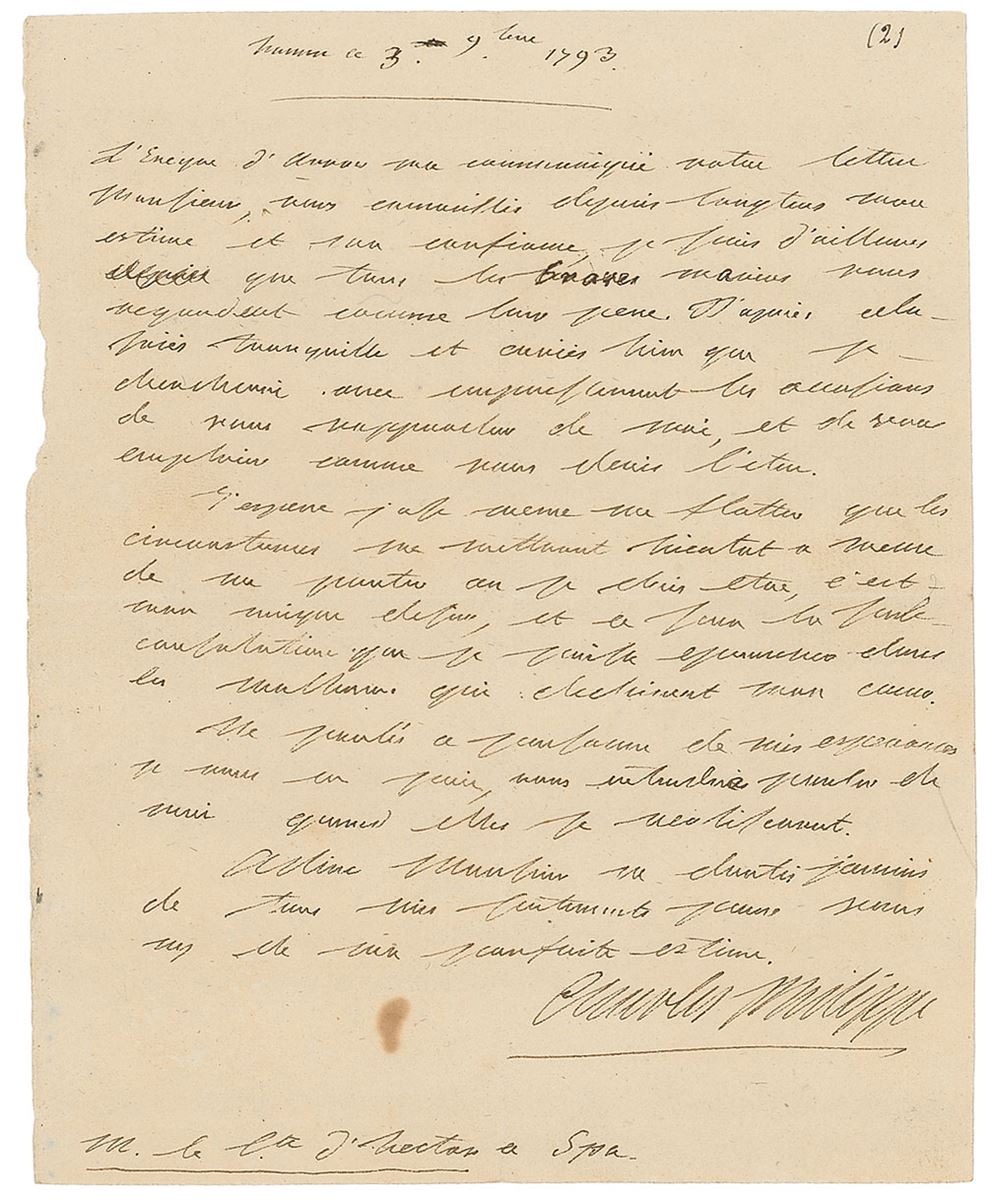 hamm ce 3. 9.bre 1793.
(2)
L'Eveque d'Arras ma communiqué votre lettre
Monsieur, vous connoissés depuis longtems mon
estime et ma confiance, je sais d'ailleurs
que tous les braves marins vous
regardent comme leur pere. D'après cela
soiés tranquille et croiés bien que je
chercherai avec empressement les occasions
de vous rapprocher de moi, et de vous
emploier comme vous devés l'etre.
J'espere j'ose meme me flatter que les
circonstances me mettront bientot a meme
de me porter ou je dois etre, c'est
mon unique desir, et ce sera la seule
consolation que je puisse eprouver dans
les malheurs qui dechirent mon coeur.
Ne parlés a personne de mes esperances
je vous en prie, vous entendrés parler de
moi quand elles se realiseront.
Adieu Monsieur ne doutés jamais
de tous mes sentiments pour vous
ny de ma parfaite estime.
Charles Philippe
M. le C.te d'hector a Spa.